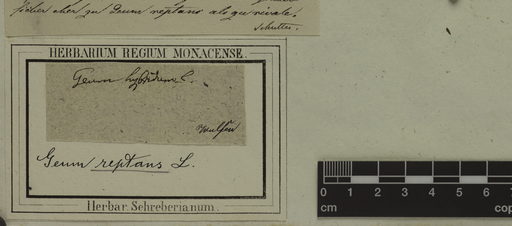 sicher eher zu Geum reptans als zu rivale.
Schutter.
HERBARIUM REGIUM MONACENSE.
Geum hybridum L.
Wulfen
Geum reptans L.
Herbar. Schreberianum.
0 1 2 3 4 5 6 7
cm cop